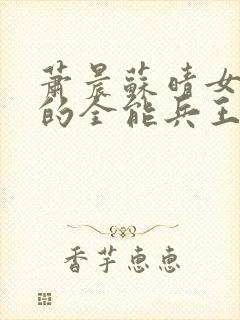 萧晨蘇晴女
的全能兵王
香芋恵恵